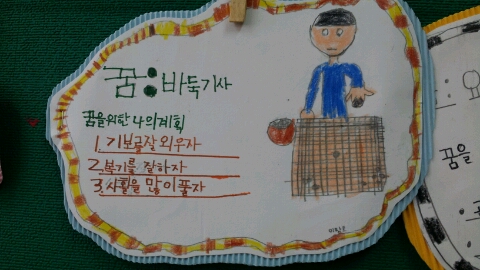 꿈:바둑기사
꿈을위한 나의계획
1. 기보를잘외우자
2. 복기를 잘하자
3. 사활을 많이풀자
꿈을